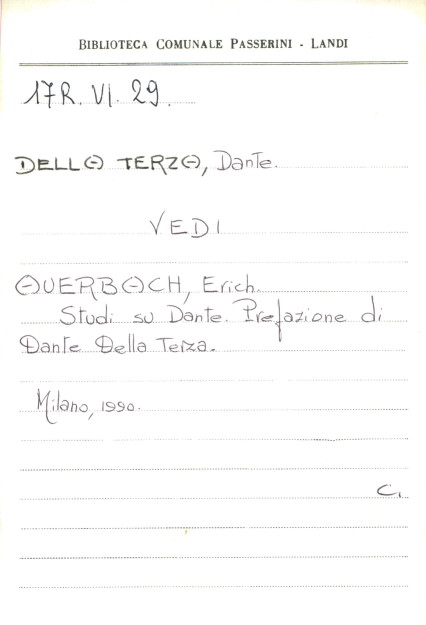 BIBLIOTECA COMUNALE PASSERINI - LANDI
17R. VI. 29.
DELLA TERZA, Dante.
VEDI
AUERBACH, Erich.
Studi su Dante. Prefazione di
Dante Della Terza.
Milano, 1990.
C.